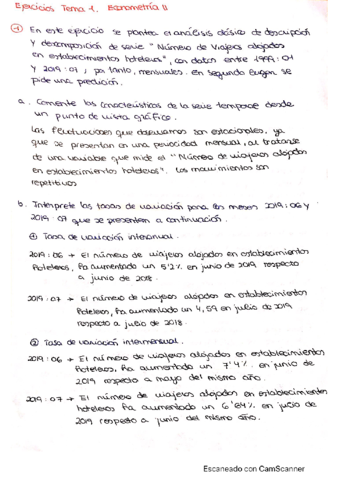 Ejercicios Tema 1. Econometría II
1) En este ejercicio se plantea el análisis clásico de descripción
y descomposición de serie "Número de viajeros alojados
en establecimientos hoteleros", con datos entre 1999:01
y 2019:07, por tanto, mensuales. En segundo lugar se
pide una predicción.
a. Comente las características de la serie temporal desde
un punto de vista gráfico.
Las fluctuaciones que observamos son estacionales, ya
que se presentan en una periocidad mensual, al tratarse
de una variable que mide el "Número de viajeros alojados
en establecimientos hoteleros". Los movimientos son
repetitivos
b. Interprete las tasas de variación para los meses 2019:06 y
2019:07 que se presentan a continuación.
① Tasa de variación interanual.
2019:06 → El número de viajeros alojados en establecimientos
hoteleros, ha aumentado un 5'2% en junio de 2019, respecto
a junio de 2018.
2019:07 → El número de viajeros alojados en establecimientos
hoteleros, ha aumentado un 4,59 en julio de 2019
respecto a julio de 2018.
② Tasa de variación intermensual.
2019:06 → El número de viajeros alojados en establecimientos
hoteleros, ha aumentado un 7'4% en junio de
2019 respecto a mayo del mismo año.
2019:07 → El número de viajeros alojados en establecimientos
hoteleros ha aumentado un 6'84% en julio de
2019 respecto a junio del mismo año.
Escaneado con CamScanner